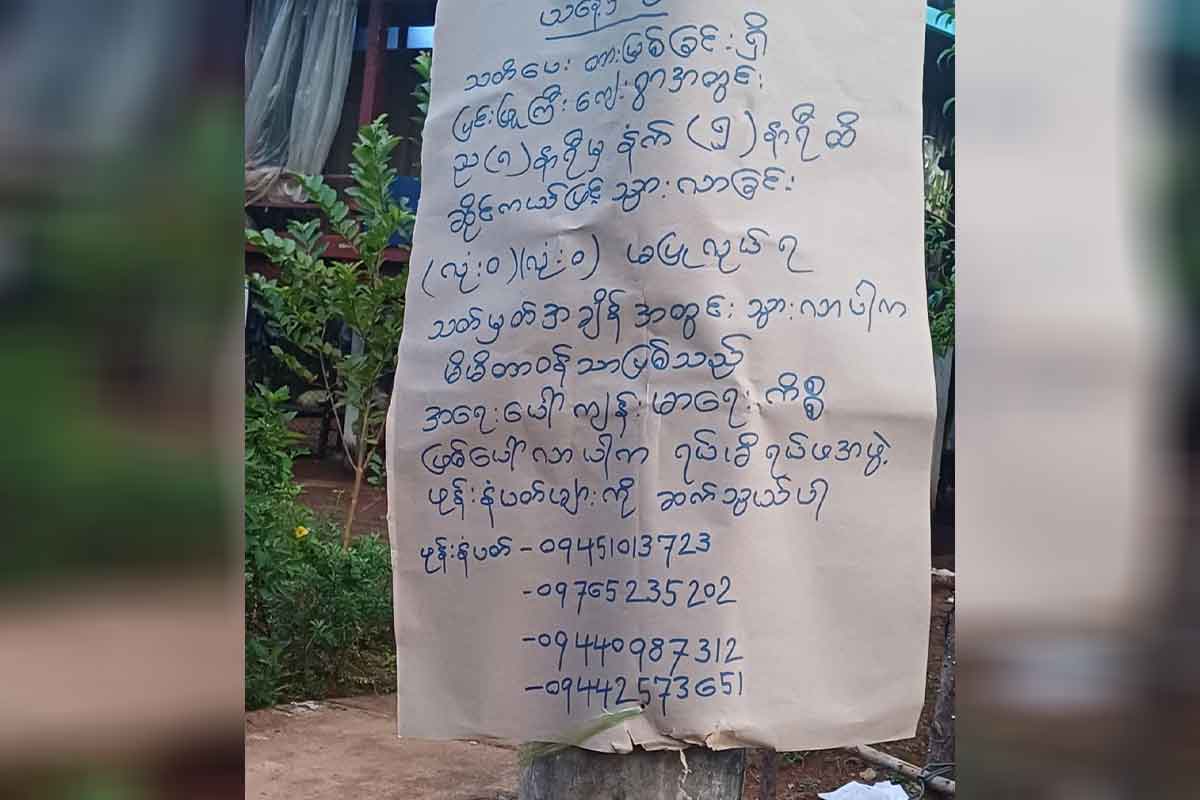 သတိပေး တားမြစ်ခြင်း ရှိ
မြင်းဖြူကြီး ကျေးရွာအတွင်း
ည(၇)နာရီမှ နံက် (၅)နာရီ ထိ
ဆိုင်ကယ်ဖြင့် သွားလာခြင်း
(လုံးဝ)(လုံးဝ) မပြုလုပ်ရ
သတ်မှတ်အချိန်အတွင်း သွားလာပါက
မိမိတာဝန်သာဖြစ်သည်
အရေးပေါ် ကျန်းမာရေး ကိစ္စ
ဖြစ်ပေါ်လာပါက ရပ်မိရပ်ဖအဖွဲ့
ဖုန်းနံပတ်များကို ဆက်သွယ်ပါ
ဖုန်းနံပတ် - 09451013723
- 09765235202
- 09440987312
- 09442573651